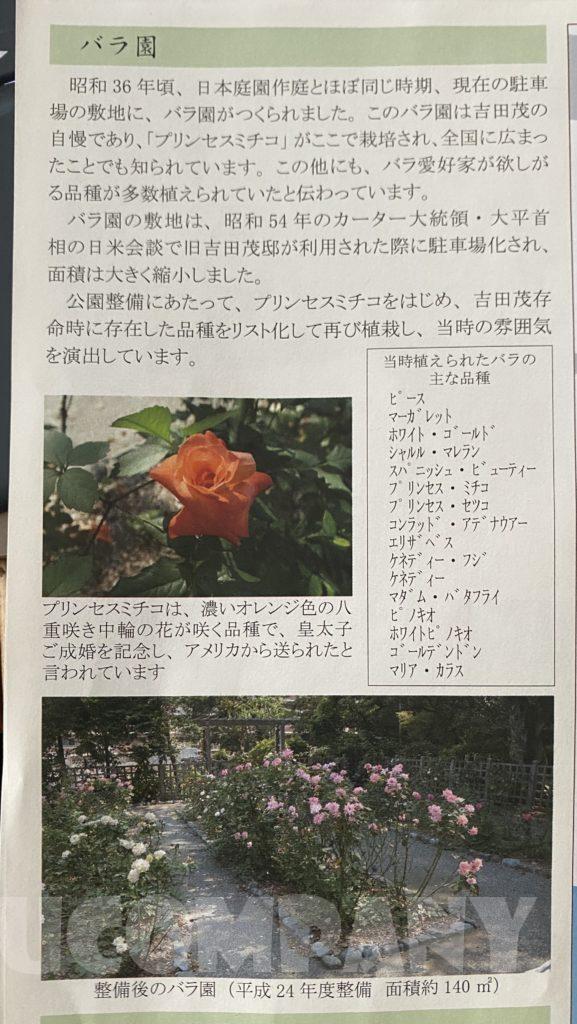 バラ園
昭和36年頃、日本庭園作庭とほぼ同じ時期、現在の駐車
場の敷地に、バラ園がつくられました。このバラ園は吉田茂の
自慢であり、「プリンセスミチコ」がここで栽培され、全国に広まっ
たことでも知られています。この他にも、バラ愛好家が欲しが
る品種が多数植えられていたと伝わっています。
バラ園の敷地は、昭和54年のカーター大統領・大平首
相の日米会談で旧吉田茂邸が利用された際に駐車場化され、
面積は大きく縮小しました。
公園整備にあたって、プリンセスミチコをはじめ、吉田茂存
命時に存在した品種をリスト化して再び植栽し、当時の雰囲気
を演出しています。
当時植えられたバラの
主な品種
ピース
マーガレット
ホワイト・ゴールド
シャルル・マレラン
スパニッシュ・ビューティー
プリンセス・ミチコ
プリンセス・セツコ
コンラッド・アデナウアー
エリザベス
ケネディー・フジ
ケネディー
マダム・バタフライ
ピノキオ
ホワイトピノキオ
ゴールデンドン
マリア・カラス
プリンセスミチコは、濃いオレンジ色の八
重咲き中輪の花が咲く品種で、皇太子
ご成婚を記念し、アメリカから送られたと
言われています
UCOMPANY
整備後のバラ園（平成24年度整備 面積約140㎡）